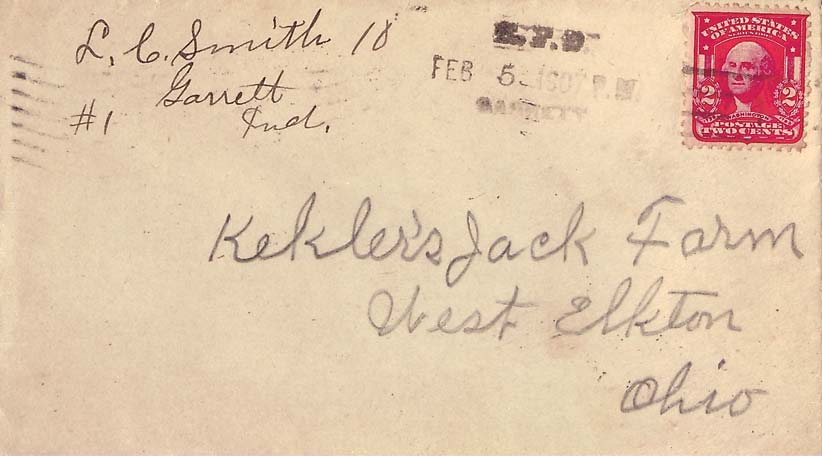 L. C. Smith 10
Garrett
#1 Ind.
R.F.D.
FEB 5 1907 P.M.
GARRETT
UNITED STATES
OF AMERICA
2 2
WASHINGTON
POSTAGE
TWO CENTS
Kekler's Jack Farm
West Elkton
Ohio